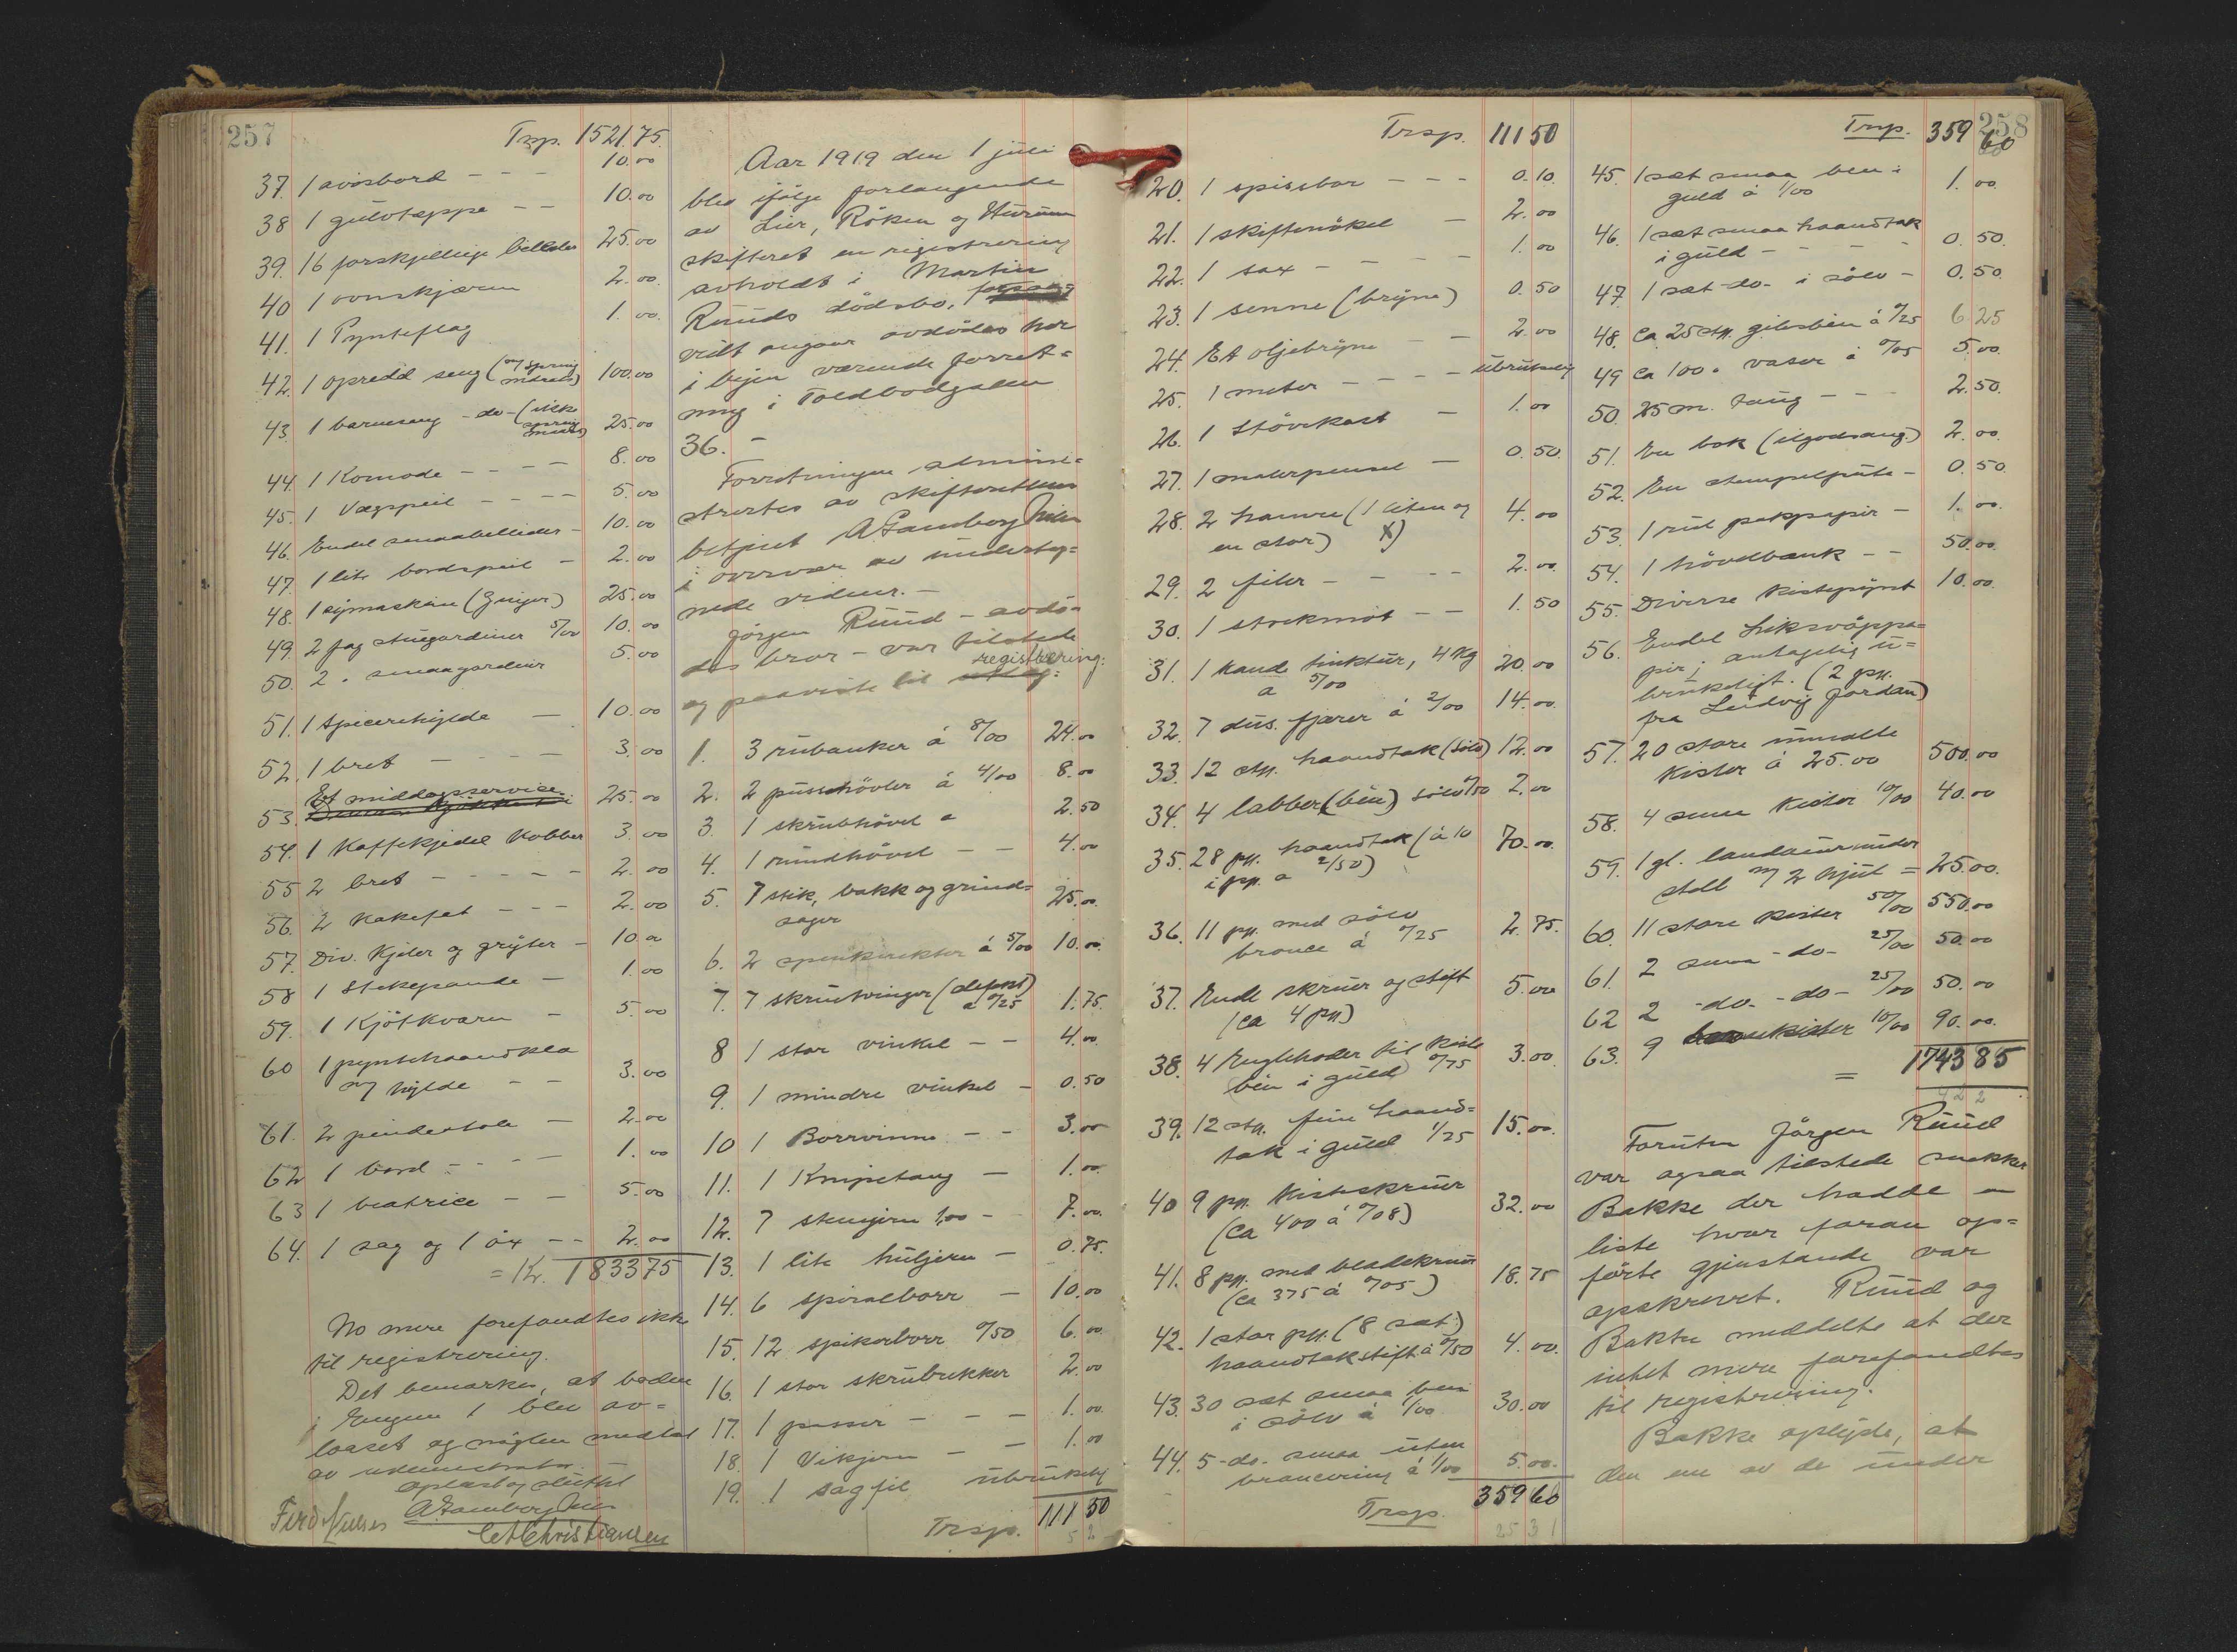 257
Trsp. 1521.75.
37. 1 avisbord - - - 10.00
38 1 gulvtæppe - - 10.00
39. 16 forskjellige billeder 25.00
40 1 ovnskjærm 2.00
41. 1 Pynteflag 1.00.
42. 1 opredd seng (m/ spring
madrass) 100.00
43. 1 barneseng -do- (ikke
spring
madr.) 25.00
44. 1 Komode - - - - 8.00
45. 1 Vægspeil - - - - 5.00
46. Endel smaabilleder - 10.00
47. 1 lite bordspeil - 2.00
48. 1 symaskin (Zinger) 25.00
49. 2 fag stuegardiner 5/00 10.00
50. 2 " smaagardiner 5.00
51. 1 Spicerehylde - 10.00
52. 1 bret - - - 3.00
53. Et middagsservice 25.00
54. 1 Kaffekjedel Kobber 3.00
55 2 bret - - - - - 2.00
56. 2 Kakefat - - - 2.00
57. Div. Kjeler og gryter - 10.00
58 1 Stekepande - 1.00
59. 1 Kjötkvarn - 5.00
60 1 pyntehaandklæ
m/ hylde - - 3.00
61. 2 pindestole - 2.00
62 1 bord - - - - 1.00
63 1 beatrice - - 5.00
64. 1 sag og 1 öx - - 2.00
= Kr. 1833 75
No mere forefandtes ikke
til registrering.
Det bemærkes, at boden
i Engene 1 blev av=
laaset og nöglen medtat
av administrator. -
oplæst og sluttet
A. Gamborg
Ferd. Nielsen
C. A. Christiansen
Aar 1919 den 1 juli
blev ifölge forlangende
av Lier, Röken og Hurum
skifteret en registrering
avholdt i Martin
Ruuds dödsbo,
vidt angaar avdödes her
i byen værende forret=
ning i Toldbodgaten
36. -
Forretningen admini=
strertes av skifterettens
betjent A Gamborg
i overvær av underteg=
nede vidner. -
Jörgen Ruud - avdö=
des bror - var tilstede
og paaviste til registrering:
1. 3 rubanker á 8/00 24.00
2. 2 pusshövler á 4/00 8.00
3. 1 skrubhövel " 2.50
4. 1 rundhövel - - 4.00
5. 7 stik, bakk og grind=
sager 25.00.
6. 2 á 5/00 10.00.
7. 7 skrutvinger (defekt)
á 0/25 1.75.
8 1 stor vinkel - - 4.00.
9. 1 mindre vinkel - 0.50
10 1 Borrvinne - - 3.00
11. 1 Knipetang - 1.00.
12. 7 stemjern 1,00 - 7.00.
13. 1 lite huljern - 0.75.
14. 6 spiralborr - 10.00
15. 12 spikerborr 0/50 6.00
16. 1 stor skrutrekker 2.00
17. 1 passer - - - 1.00.
18. 1 Vikjern - - 1.00
19. 1 sagfil ubrukelig
Trsp. 111 50
Trsp. 111 50
20. 1 - - - 0.10.
21. 1 skiftenökel - 2.00
22. 1 sax - - - - 1.00
23. 1 senne (bryne) 0.50
24. Et oljebryne - - 2.00
25. 1 meter - - - - ubrukelig
26. 1 Stövekost - 1.00
27. 1 malerpensel - 0.50.
28. 2 hamre (1 liten og
en stor) 4.00
29. 2 filer - - - - 2.00.
30. 1 stokmöt - - 1.50
31. 1 kande tinktur, 4 Kg
a 5/00 20.00
32. 7 dus. fjærer á 2/00 14.00.
33. 12 stk. haandtak (sölv) 12.00
34. 4 labber (bén) sölv 0/50 2.00
35. 28 pk. haandtak (á 10
i pk. a 2/50) 70.00.
36. 11 pk. med sölv
bronce á 0/25 2.75.
37. Endl skruer og stift
(ca 4 pk) 5.00
38. 4 Englehoder til Kiste
ben i guld 0/75 3.00.
39. 12 stk. fine haand=
tak i guld 1/25 15.00.
40 9 pk. Kisteskruer
(ca 400 á 0/08) 32.00
41. 8 pk. med bladskruer
(ca 375 á 0/05) 18.75
42. 1 stor pk. (8 sæt)
haandtakstift á 0/50 4.00.
43. 30 sæt smaa ben
i sölv á 1/00 30.00
44. 5 -do- smaa uten
broncering á 1/00 5.00.
Trsp. 359 60
258
Trsp. 359 60
45. 1 sæt smaa ben i
guld á 1/00 1.00.
46. 1 sæt smaa haandtak
i guld - - - - 0.50.
47. 1 sæt -do- i sölv - 0.50.
48. Ca. 25 stk. gibsben á 0/25 6.25
49 Ca 100 " vaser á 0/05 5.00.
50. 25 m. taug - - - 2.50.
51. En bok (ilgodsang.) 2.00.
52. En stempelpute - 0.50.
53. 1 rul pakpapir - 1.00.
54. 1 hövelbænk - - 50.00.
55. Diverse Kistepynt 10.00.
56. Endel Liksvöppa=
pir, antagelig u=
brukeligt. (2 pk.
fra Ludvig Jordan)
57. 20 store umalte
Kister á 25.00 500.00
58. 4 smaa Kister 10/00 40.00
59. 1 gl. landauerunder
stell m/ 2 hjul = 25.00.
60. 11 store Kister 50/00 550.00
61. 2 smaa -do- 25/00 50.00
62 2 -do- -do- 25/00 50.00
63. 9 barnekister 10/00 90.00.
= 1743 85
Foruten Jörgen Ruud
var ogsaa tilstede snekker
Bakke der hadde en
liste hvor foran op=
förte gjenstande var
opskrevet. Ruud og
Bakke meddelte at der
intet mere forefandtes
til registrering.
Bakke oplyste, at
den ene av de under